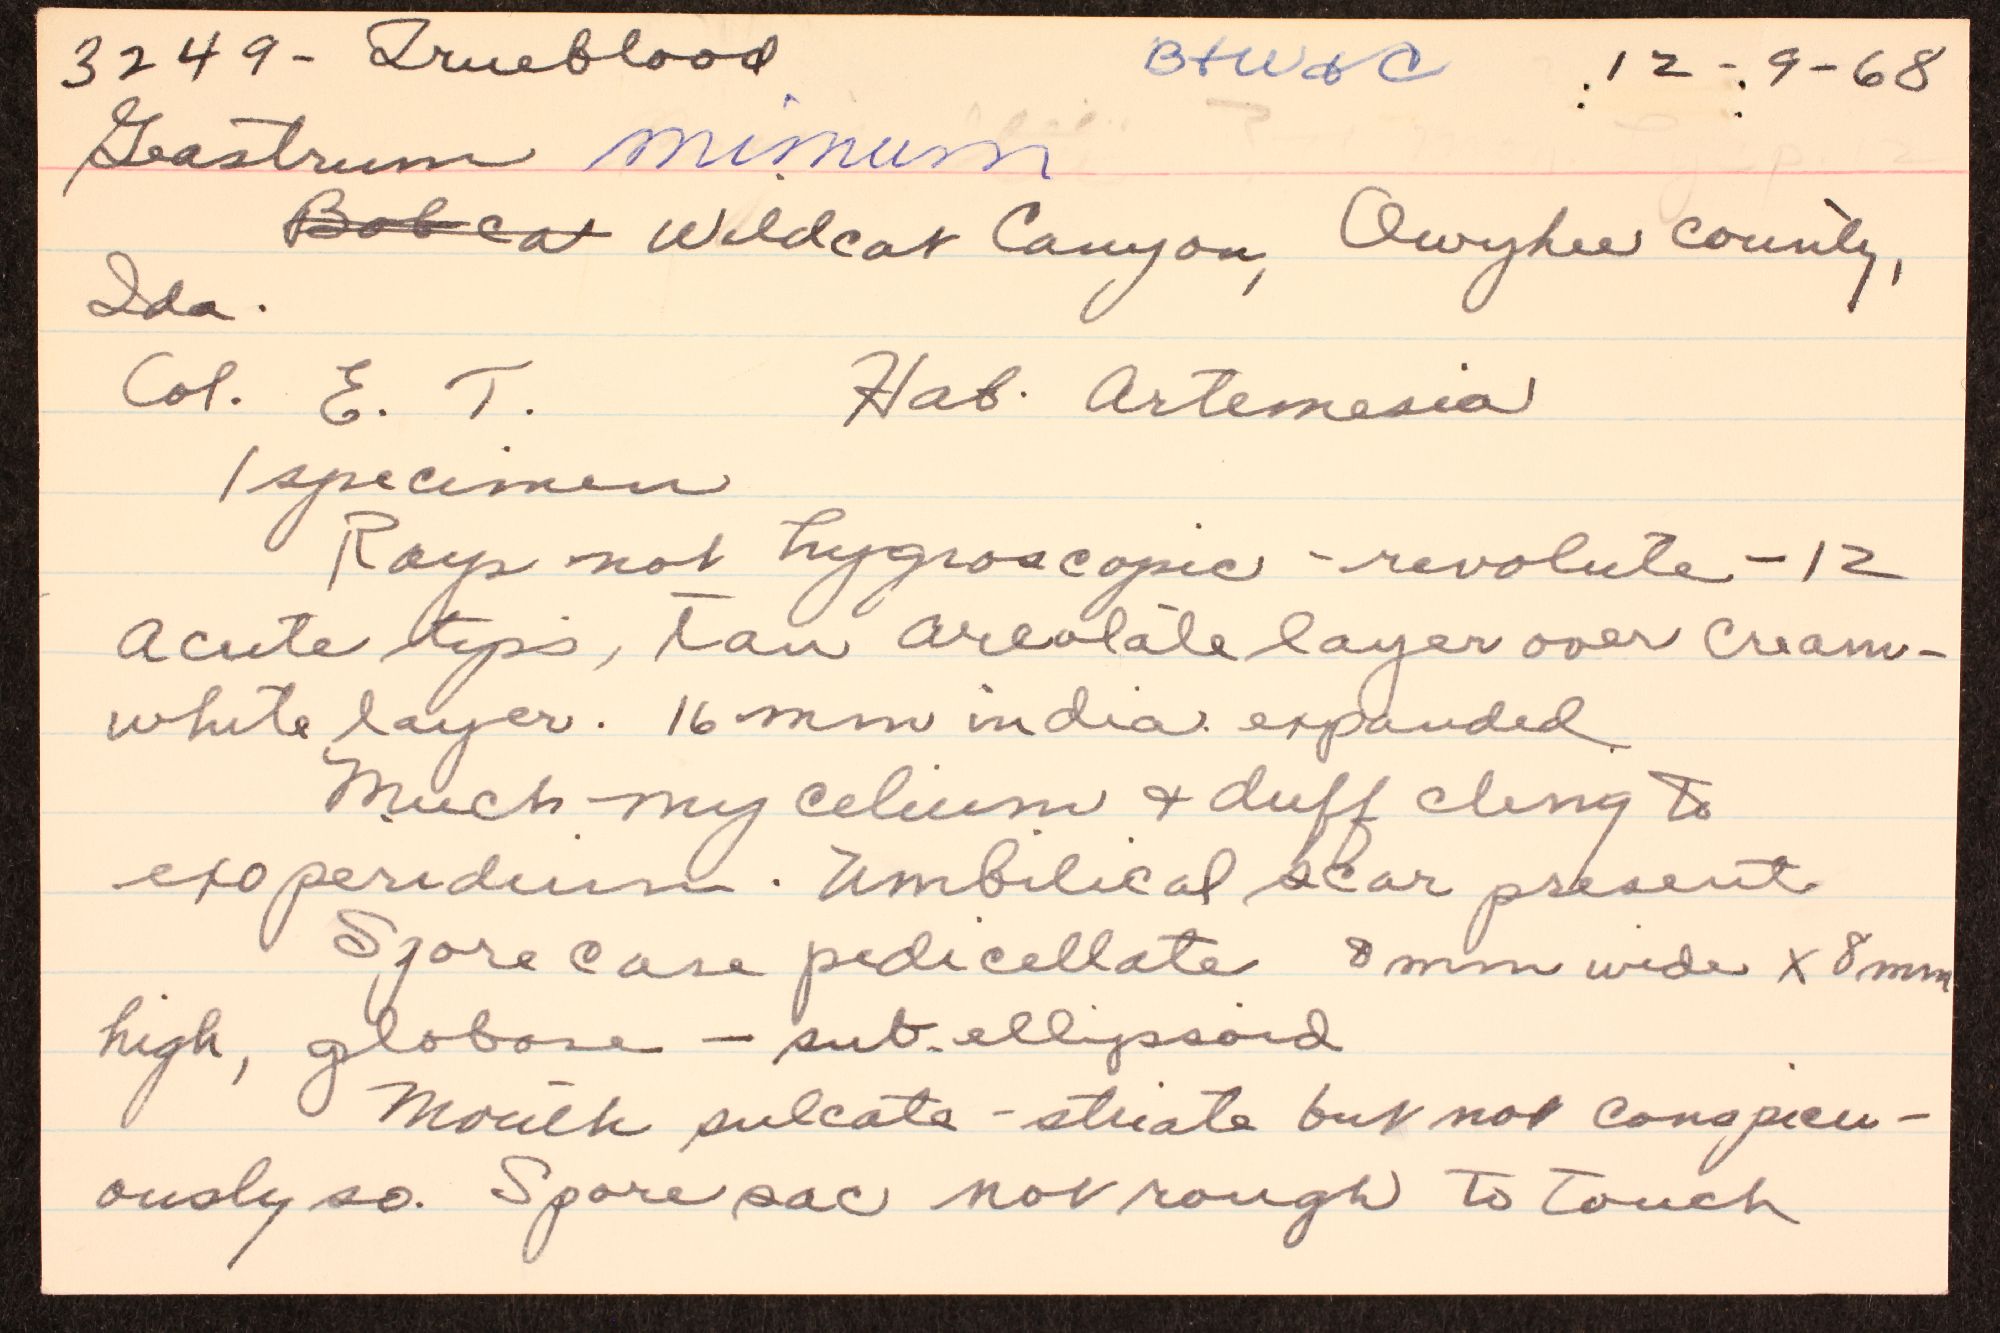 3249- Trueblood B+W+C 12-9-68
Geastrum minimum
Bobcat Wildcat Canyon, Owyhee county,
Ida.
Col. E. T. Hab. Artemesia
1 specimen
Rays not hygroscopic - revolute - 12
acute tips, tan areolate layer over cream-
white layer. 16 mm in dia. expanded
Much mycelium + duff cling to
exoperidium. Umbilical scar present
Spore case pedicellate 8 mm wide x 8 mm
high, globose - sub-ellipsoid
Mouth sulcate - striate but not conspicu-
ously so. Spore sac not rough to touch